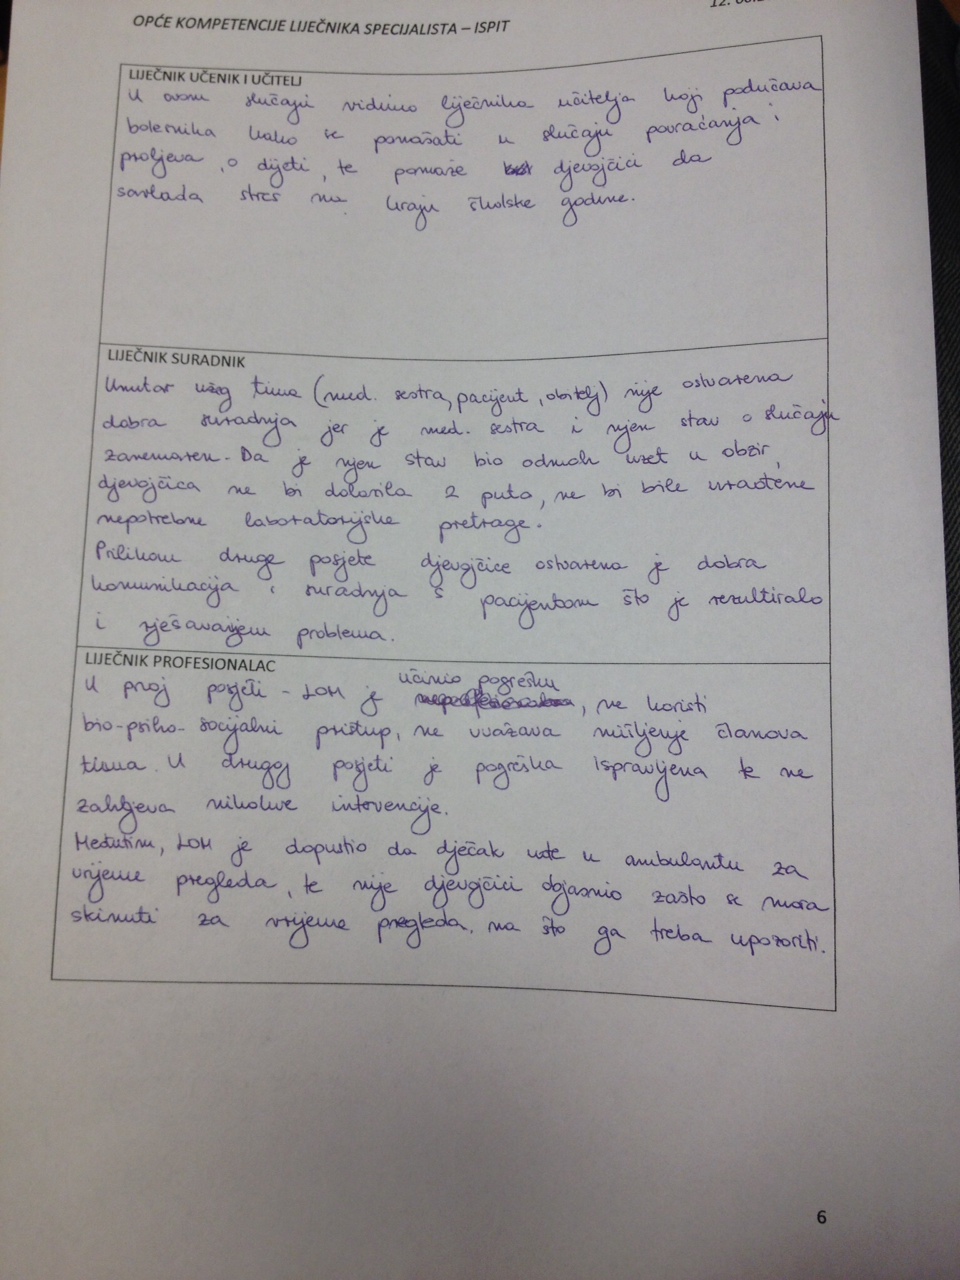 12.
OPĆE KOMPETENCIJE LIJEČNIKA SPECIJALISTA – ISPIT
LIJEČNIK UČENIK I UČITELJ
U ovom slučaju vidimo liječnika učitelja koji podučava
bolesnika kako se ponašati u slučaju povraćanja i
proljeva, o dijeti, te pomaže djevojčici da
savlada stres na kraju školske godine.
LIJEČNIK SURADNIK
Unutar užeg tima (med. sestra, pacijent, obitelj) nije ostvarena
dobra suradnja jer je med. sestra i njen stav o slučaju
zanemaren. Da je njen stav bio odmah uzet u obzir,
djevojčica ne bi dolazila 2 puta, ne bi bile vrađene
nepotrebne laboratorijske pretrage.
Prilikom druge posjete djevojčice ostvarena je dobra
komunikacija i suradnja s pacijentom što je rezultiralo
i rješavanjem problema.
LIJEČNIK PROFESIONALAC
U prvoj posjeti - LOM je učinio pogrešku, ne koristi
bio-psiho-socijalni pristup, ne uvažava mišljenje članova
tima. U drugoj posjeti je pogreška ispravljena te ne
zahtjeva nikakve intervencije.
Međutim, LOM je dopustio da dječak uđe u ambulantu za
vrijeme pregleda, te nije djevojčici objasnio zašto se mora
skinuti za vrijeme pregleda, na što ga treba upozoriti.
6